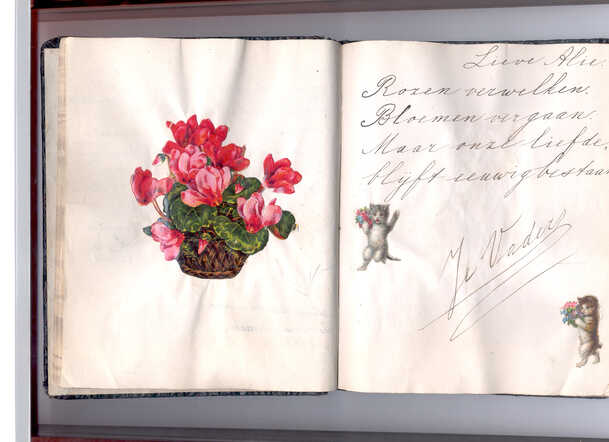 Lieve Alie.
Rozen verwelken.
Bloemen vergaan.
Maar onze liefde,
blijft eeuwig bestaan
Vader